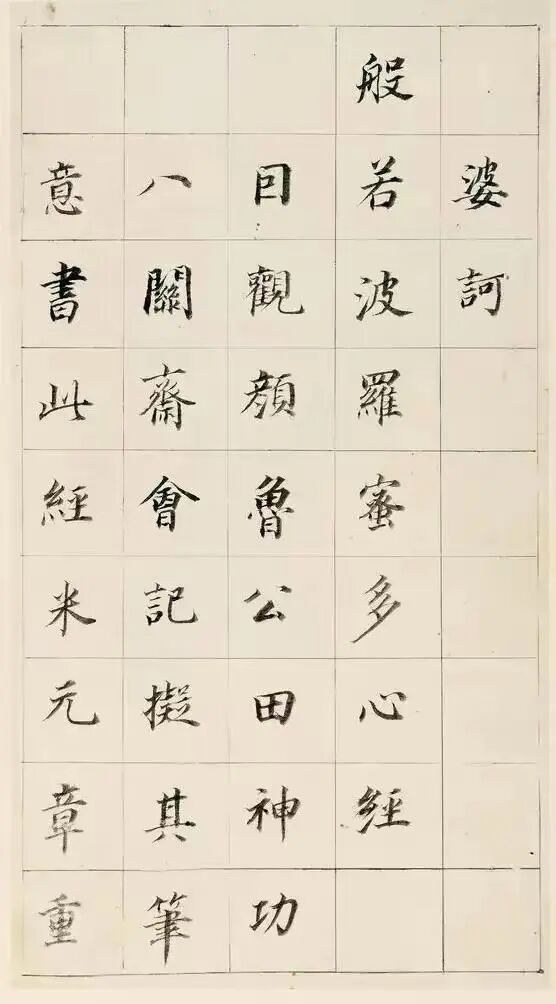 婆訶
般若波羅蜜多心經
因觀顏魯公田神功
八關齋會記擬其筆
意書此經米元章重